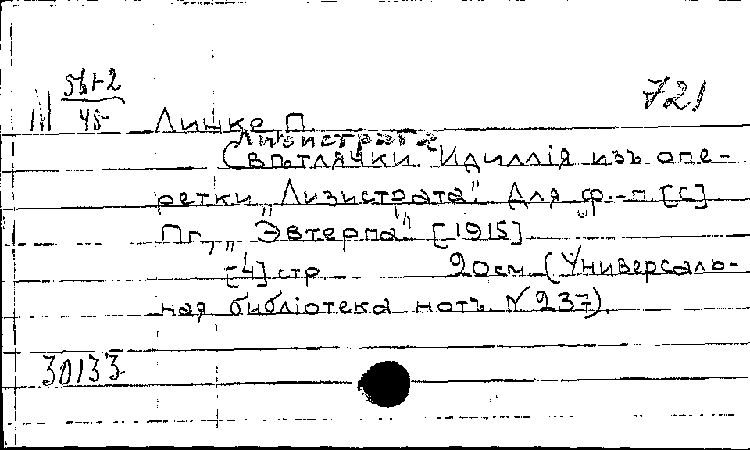 721
М 56-2
45
Линке П.
Лизистрата
Свѣтлячки. Идиллія изъ опе-
ретки „Лизистрата". Для ф.-п. [С]
Пг., „Эвтерпа" [1915]
[4] стр 20 см (Универсаль-
ная библіотека нотъ № 237).
30133